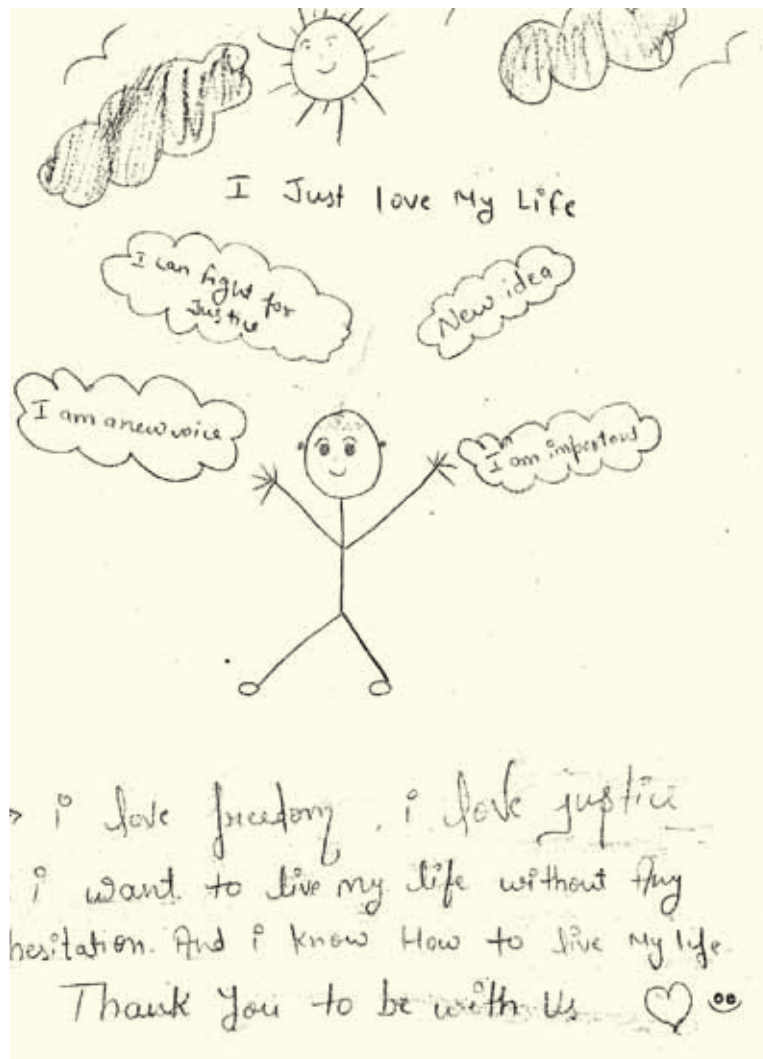 I Just love My Life
I can fight for
Justice
New idea
I am a new voice
I am important
i love freedom. i love justice
i want to live my life without Any
hesitation. And i know How to live My life.
Thank You to be with Us